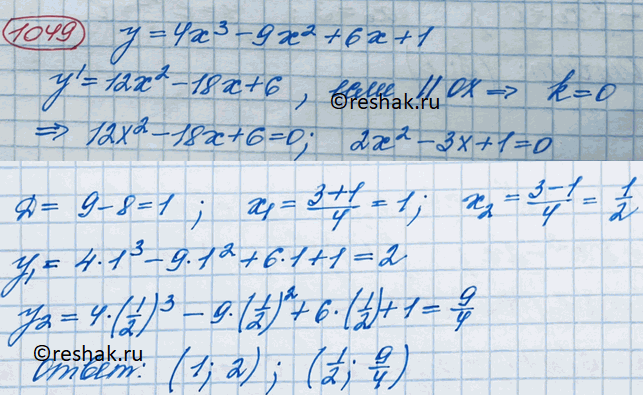 1049 y = 4x³ - 9x² + 6x + 1
y' = 12x² - 18x + 6, если || OX ⇒ k = 0
©reshak.ru
⇒ 12x² - 18x + 6 = 0; 2x² - 3x + 1 = 0
Д = 9 - 8 = 1; x₁ = (3+1)/4 = 1; x₂ = (3-1)/4 = 1/2
y₁ = 4·1³ - 9·1² + 6·1 + 1 = 2
y₂ = 4·(1/2)³ - 9·(1/2)² + 6·(1/2) + 1 = 9/4
©reshak.ru
Ответ: (1; 2); (1/2; 9/4)